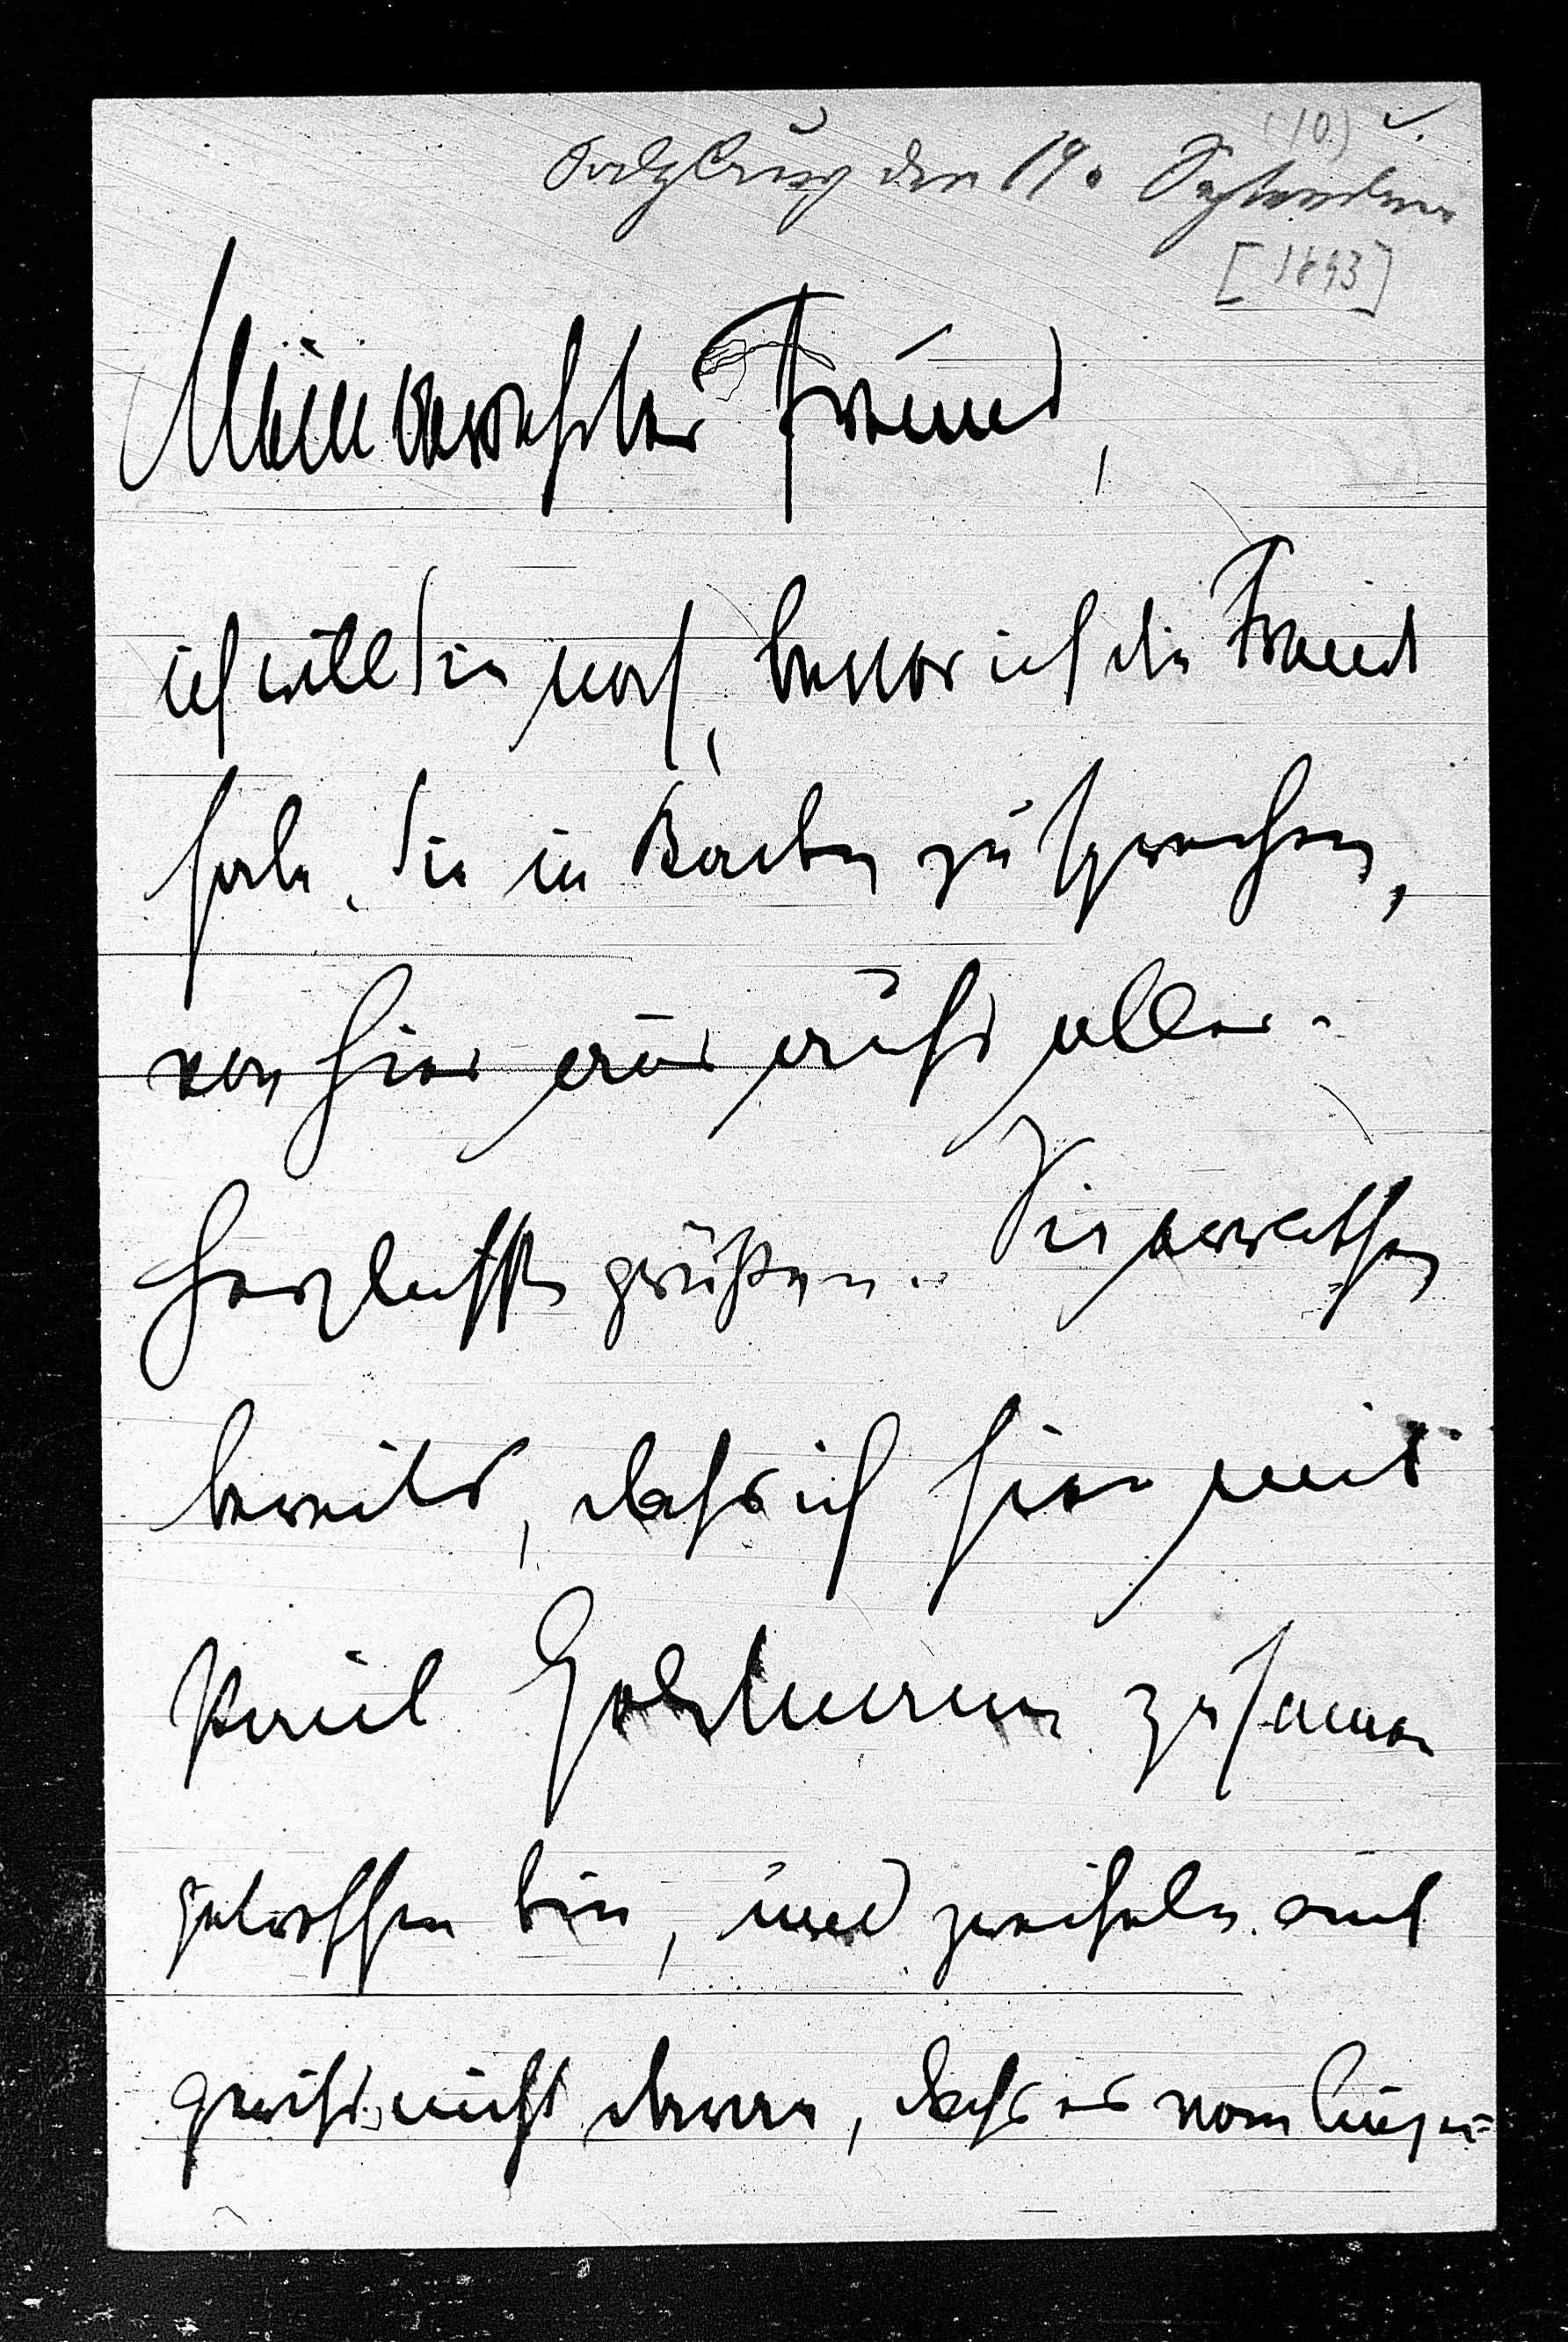 Salzburg den 19. September
(10.)
[1893]
Mein verehrter Freund,
ich will Sie noch, bevor ich die Freude
habe, Sie in Baden zu sprechen,
von hier aus aufs aller-
herzlichste grüßen. Sie errathen
bereits, dass ich hier mit
Paul Goldmann zusammen
getroffen bin, und zweifeln auch
gewiss nicht daran, dass es vom